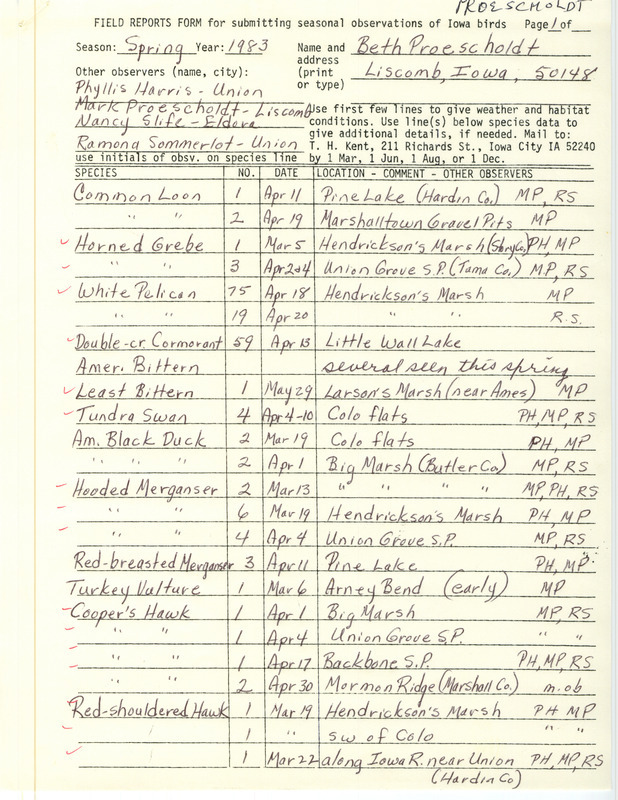 PROESCHOLDT
FIELD REPORTS FORM for submitting seasonal observations of Iowa birds Page 1 of
Season: Spring Year: 1983 Name and Beth Proescholdt
address
Other observers (name, city): (print Liscomb, Iowa, 50148
or type)
Phyllis Harris - Union
Mark Proescholdt - Liscomb Use first few lines to give weather and habitat
Nancy Slife - Eldora conditions. Use line(s) below species data to
give additional details, if needed. Mail to:
Ramona Sommerlot - Union T. H. Kent, 211 Richards St., Iowa City IA 52240
use initials of obsv. on species line by 1 Mar, 1 Jun, 1 Aug, or 1 Dec.
SPECIES NO. DATE LOCATION - COMMENT - OTHER OBSERVERS
Common Loon 1 Apr 11 Pine Lake (Hardin Co.) MP, RS
" " 2 Apr 19 Marshalltown Gravel Pits MP
Horned Grebe 1 Mar 5 Hendrickson's Marsh (Story Co.) PH, MP
" " 3 Apr 2+4 Union Grove S.P. (Tama Co.) MP, RS
White Pelican 75 Apr 18 Hendrickson's Marsh MP
" " 19 Apr 20 " " R.S.
Double-cr. Cormorant 59 Apr 13 Little Wall Lake
Amer. Bittern several seen this spring
Least Bittern 1 May 29 Larson's Marsh (near Ames) MP
Tundra Swan 4 Apr 4-10 Colo flats PH, MP, RS
Am. Black Duck 2 Mar 19 Colo flats PH, MP
" " " 2 Apr 1 Big Marsh (Butler Co.) MP, RS
Hooded Merganser 2 Mar 13 " " " " MP, PH, RS
" " 6 Mar 19 Hendrickson's Marsh PH, MP
" " 4 Apr 4 Union Grove S.P. MP, RS
Red-breasted Merganser 3 Apr 11 Pine Lake PH, MP
Turkey Vulture 1 Mar 6 Arney Bend (early) MP
Cooper's Hawk 1 Apr 1 Big Marsh MP, RS
" " 1 Apr 4 Union Grove S.P. " "
" " 1 Apr 17 Backbone S.P. PH, MP, RS
" " 2 Apr 30 Mormon Ridge (Marshall Co.) m.ob
Red-shouldered Hawk 1 Mar 19 Hendrickson's Marsh PH MP
1 " sw of Colo " "
1 Mar 22 along Iowa R. near Union PH, MP, RS
(Hardin Co)